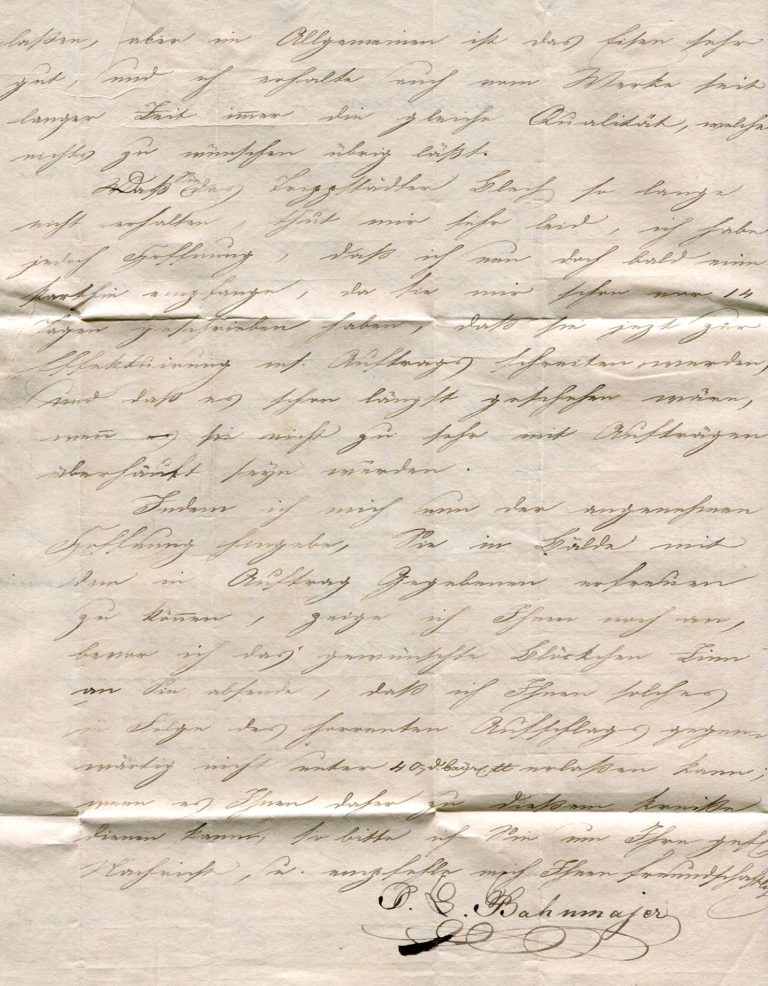 laßen, aber im Allgemeinen ist das Eisen sehr
gut, und ich erhalte auch vom Werke seit
langer Zeit immer die gleiche Qualität, welche
nichts zu wünschen übrig läßt.
Daß Sie das Trippstädter Blech so lange
nicht erhalten, thut mir sehr leid, ich habe
jedoch Hoffnung, daß ich nun doch bald eine
Parthie empfange, da sie mir schon vor 14
Tagen geschrieben haben, daß sie jezt zur
Effektuirung ms. Auftrags schreiten werden,
und daß es schon längst geschehen wäre,
wenn sie nicht zu sehr mit Aufträgen
überhäuft seyn würden.
Indem ich mich nun der angenehmen
Hoffnung hingebe, Sie in Bälde mit
dem in Auftrag Gegebenen erfreuen
zu können, zeige ich Ihnen noch an,
bevor ich das gewünschte Blöckchen Zinn
an Sie absende, daß ich Ihnen solches
in Folge des Aufschlags gegen-
wärtig nicht unter 40 erlaßen kann;
wenn es Ihnen daher zu dießem Preiße
dienen kann, so bitte ich Sie um Ihre gefl.
Nachricht, u. empfehle mich Ihnen freundschaftlich
Bahnmajer